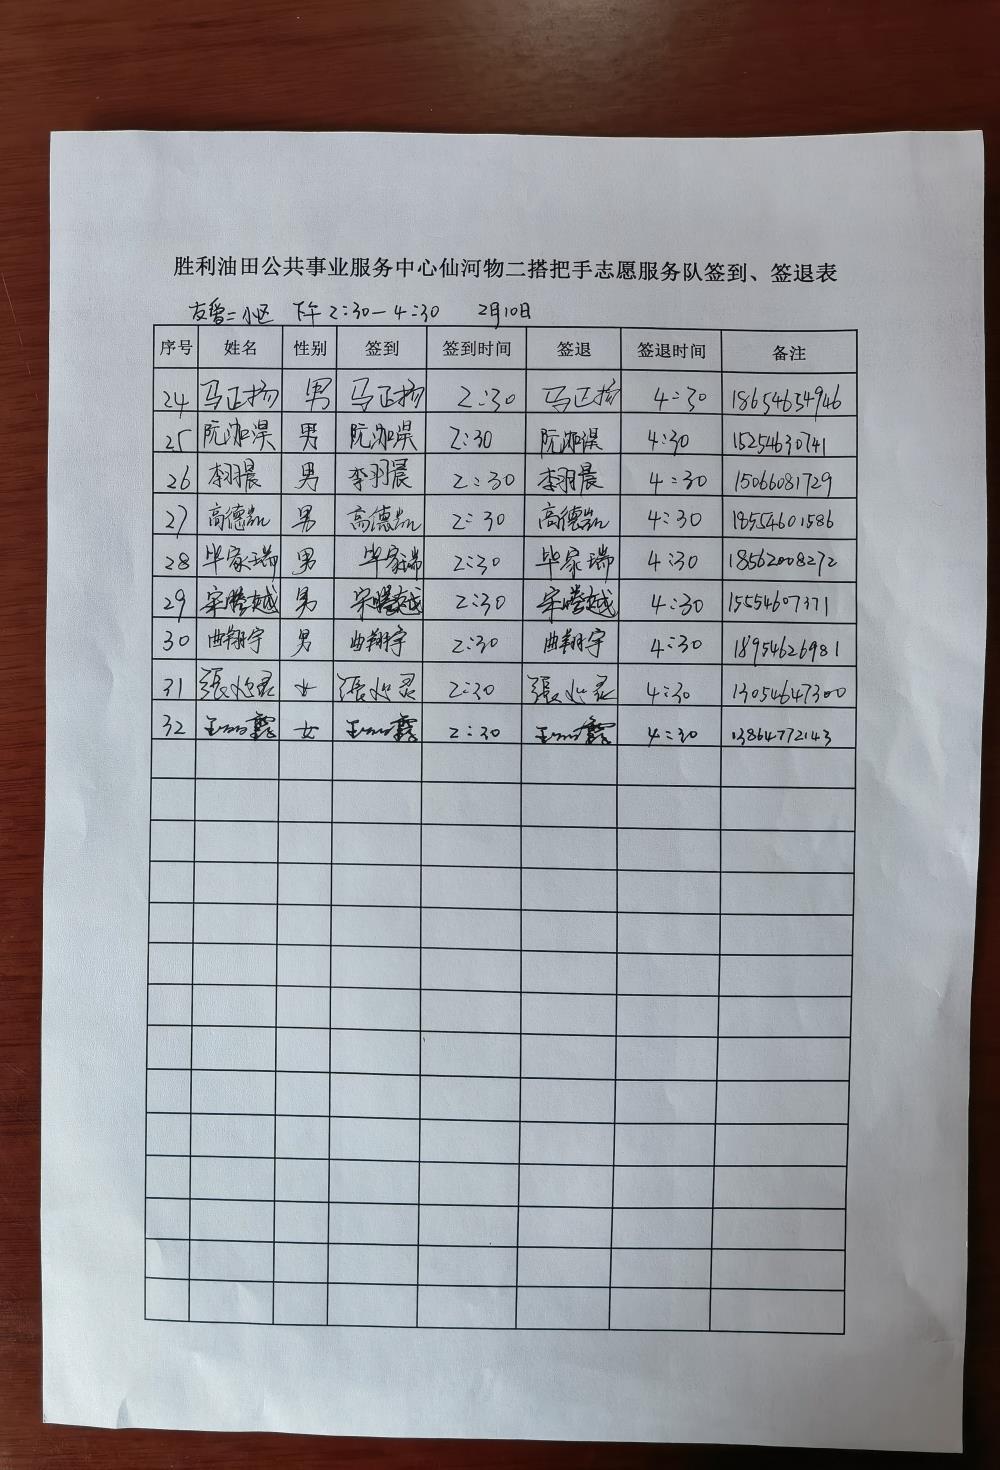 胜利油田公共事业服务中心仙河物二搭把手志愿服务队签到、签退表
友爱二小区 下午 2:30-4:30 2月10日
序号 姓名 性别 签到 签到时间 签退 签退时间 备注
24 马正扬 男 马正扬 2:30 马正扬 4:30 18654654946
25 阮加淏 男 阮加淏 2:30 阮加淏 4:30 15254630741
26 李羽晨 男 李羽晨 2:30 李羽晨 4:30 15066081729
27 高德凯 男 高德凯 2:30 高德凯 4:30 18554601586
28 毕家瑞 男 毕家瑞 2:30 毕家瑞 4:30 18562008272
29 宋腾越 男 宋腾越 2:30 宋腾越 4:30 15554607371
30 曲翔宇 男 曲翔宇 2:30 曲翔宇 4:30 18954626981
31 張 灵 女 張 灵 2:30 張 灵 4:30 13054647300
32 王 露 女 王 露 2:30 王 露 4:30 13864772143